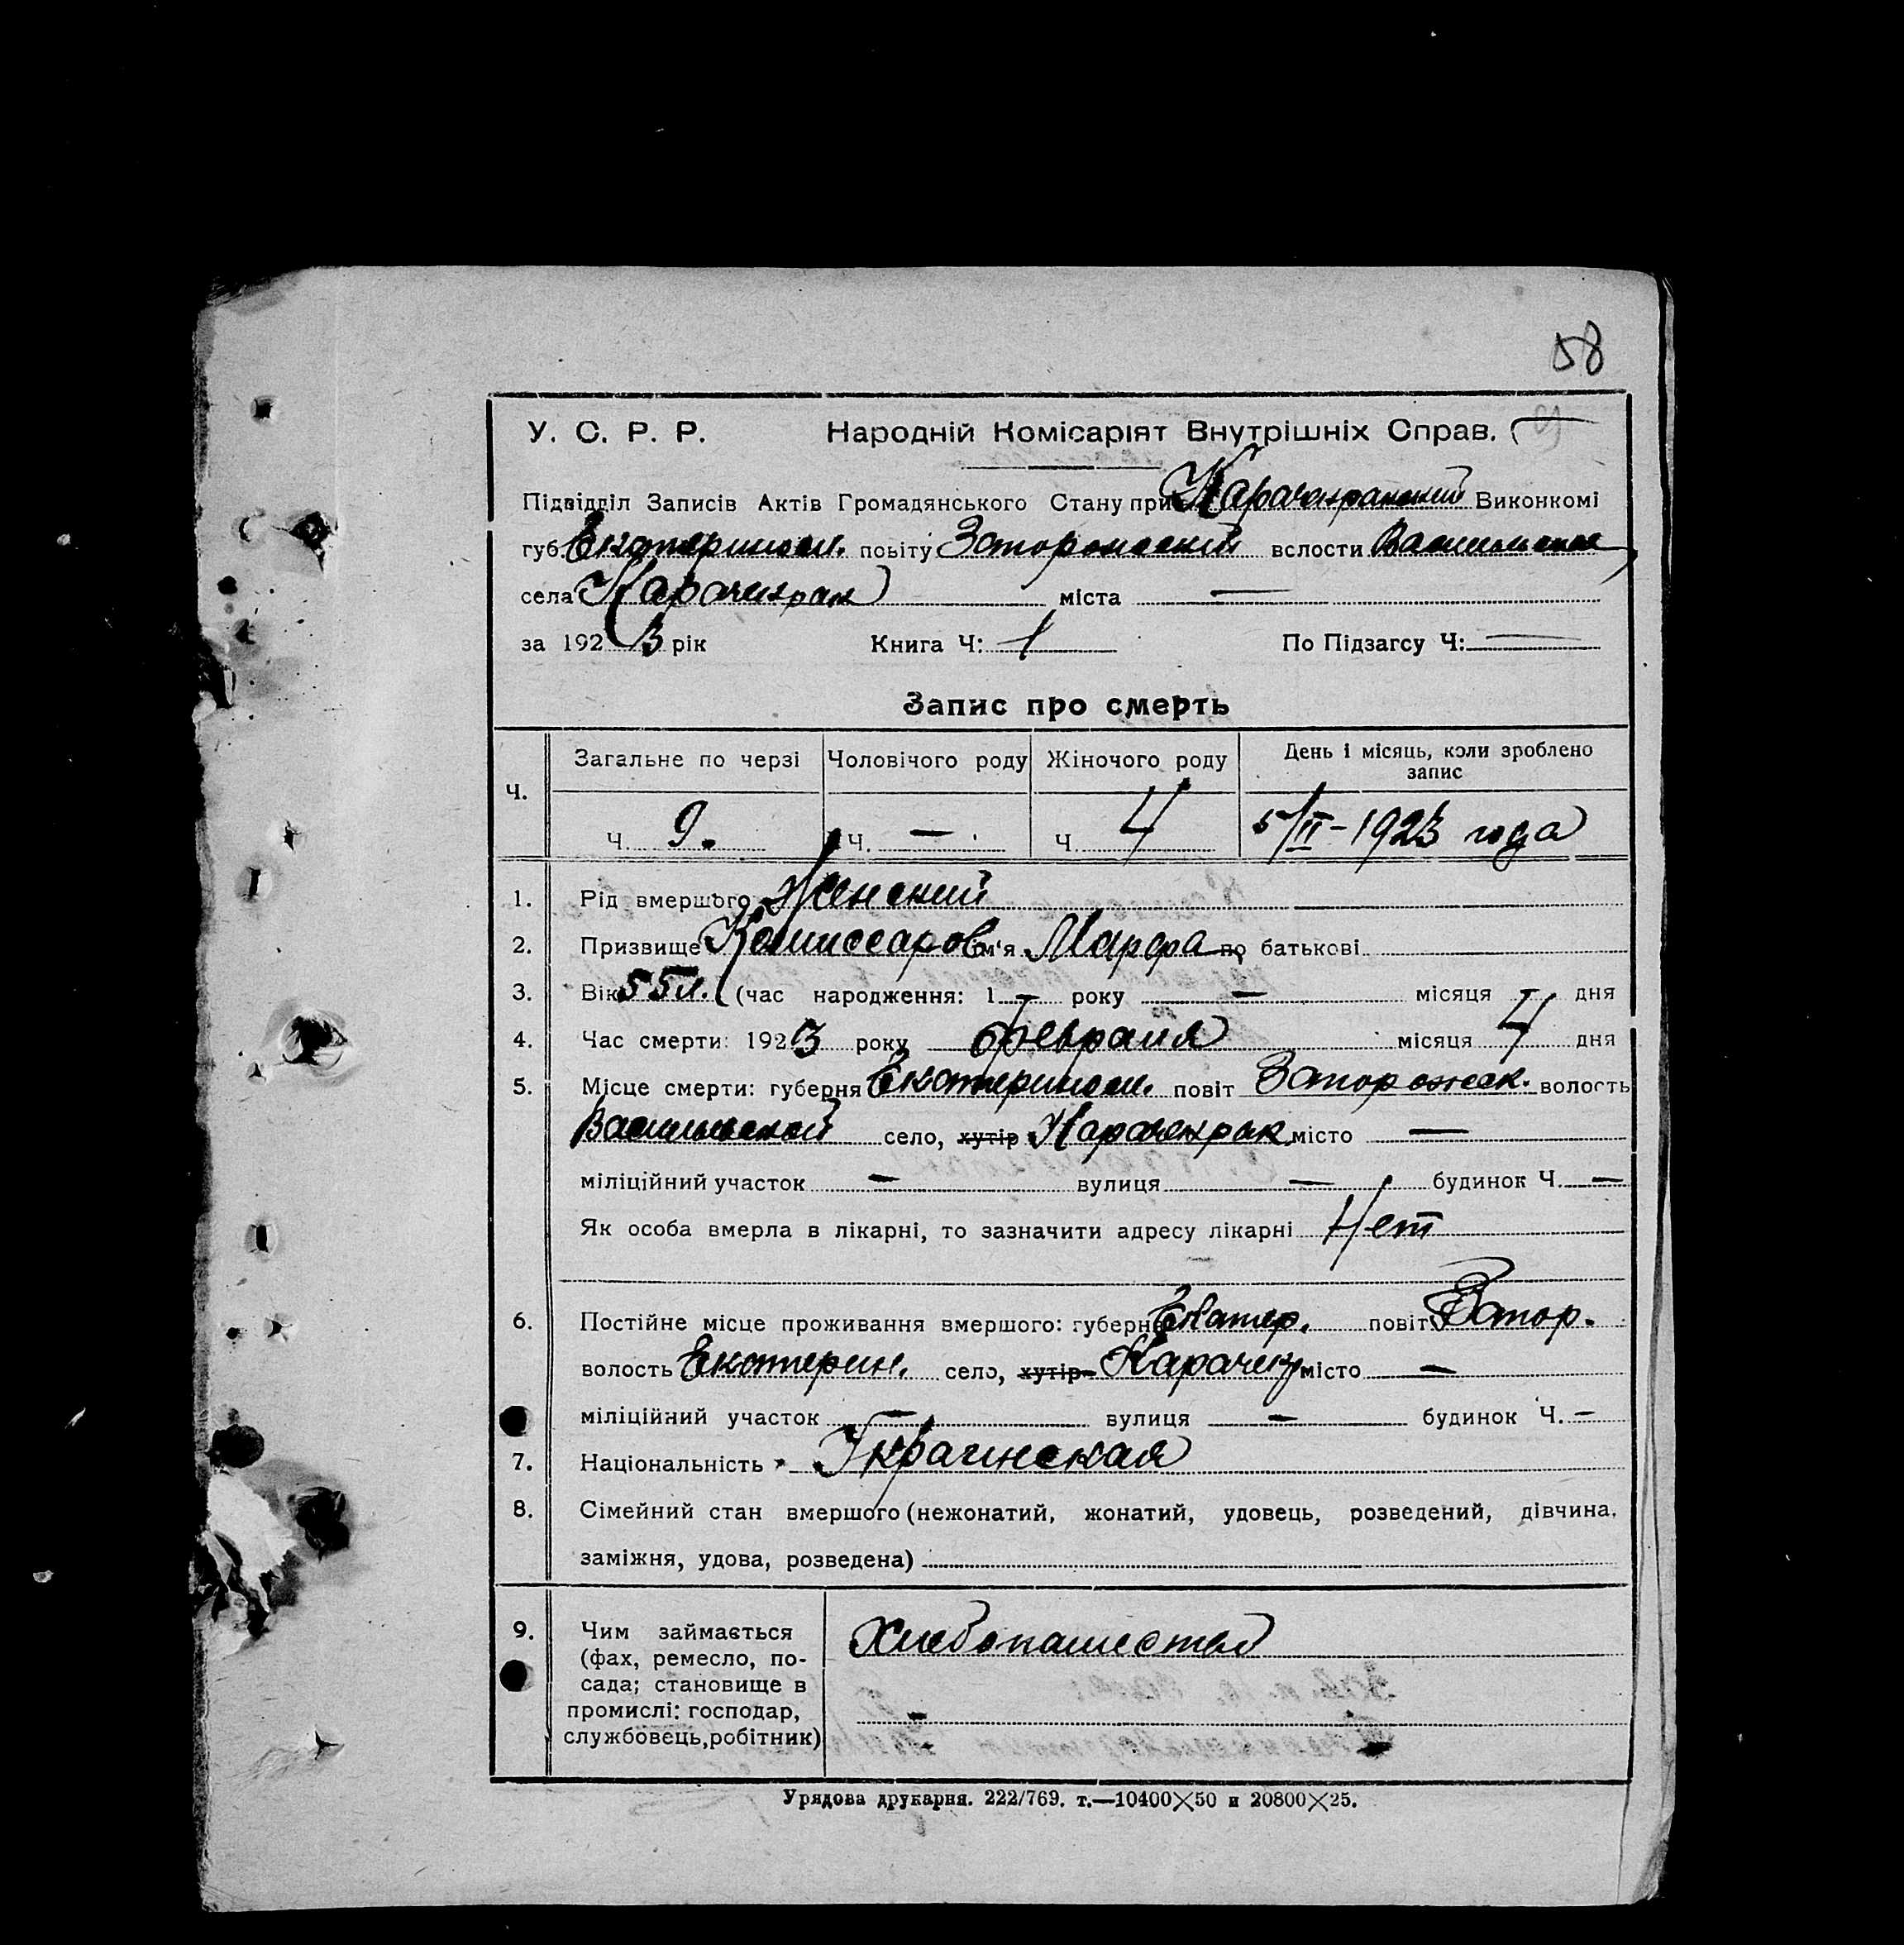 58
У. С. Р. Р. Народній Комісаріят Внутрішніх Справ.
Підвідділ Записів Актів Громадянського Стану при Карачекракский Виконкомі
губ. Екатериносл. повіту Запорожский вслости Васильевской
села Карачекрак міста —
за 1923 рік Книга Ч: 1 По Підзагсу Ч: —
Запис про смерть
Ч. Загальне по черзі Чоловічого роду Жіночого роду День і місяць, коли зроблено запис
Ч. 9. Ч. — Ч. 4 5/II-1923 года
1. Рід вмершого Женский
2. Призвище Комиссаров Ім'я Марфа по батькові
3. Вік 55 л. (час народження: 1 — року — місяця — дня
4. Час смерти: 1923 року февраля місяця 4 дня
5. Місце смерти: губерня Екатериносл. повіт Запорожск. волость
Васильевской село, хутір Карачекрак місто —
міліційний участок — вулиця — будинок Ч. —
Як особа вмерла в лікарні, то зазначити адресу лікарні Нет
6. Постійне місце проживання вмершого: губерня Екатер. повіт Запор.
волость Екатерин. село, хутір Карачек місто —
міліційний участок — вулиця — будинок Ч. —
7. Національність Украинская
8. Сімейний стан вмершого (нежонатий, жонатий, удовець, розведений, дівчина,
заміжня, удова, розведена)
9. Чим займається Хлебопашество
(фах, ремесло, по-
сада; становище в
промислі: господар,
службовець, робітник)
Урядова друкарня. 222/769. т.—10400×50 и 20800×25.